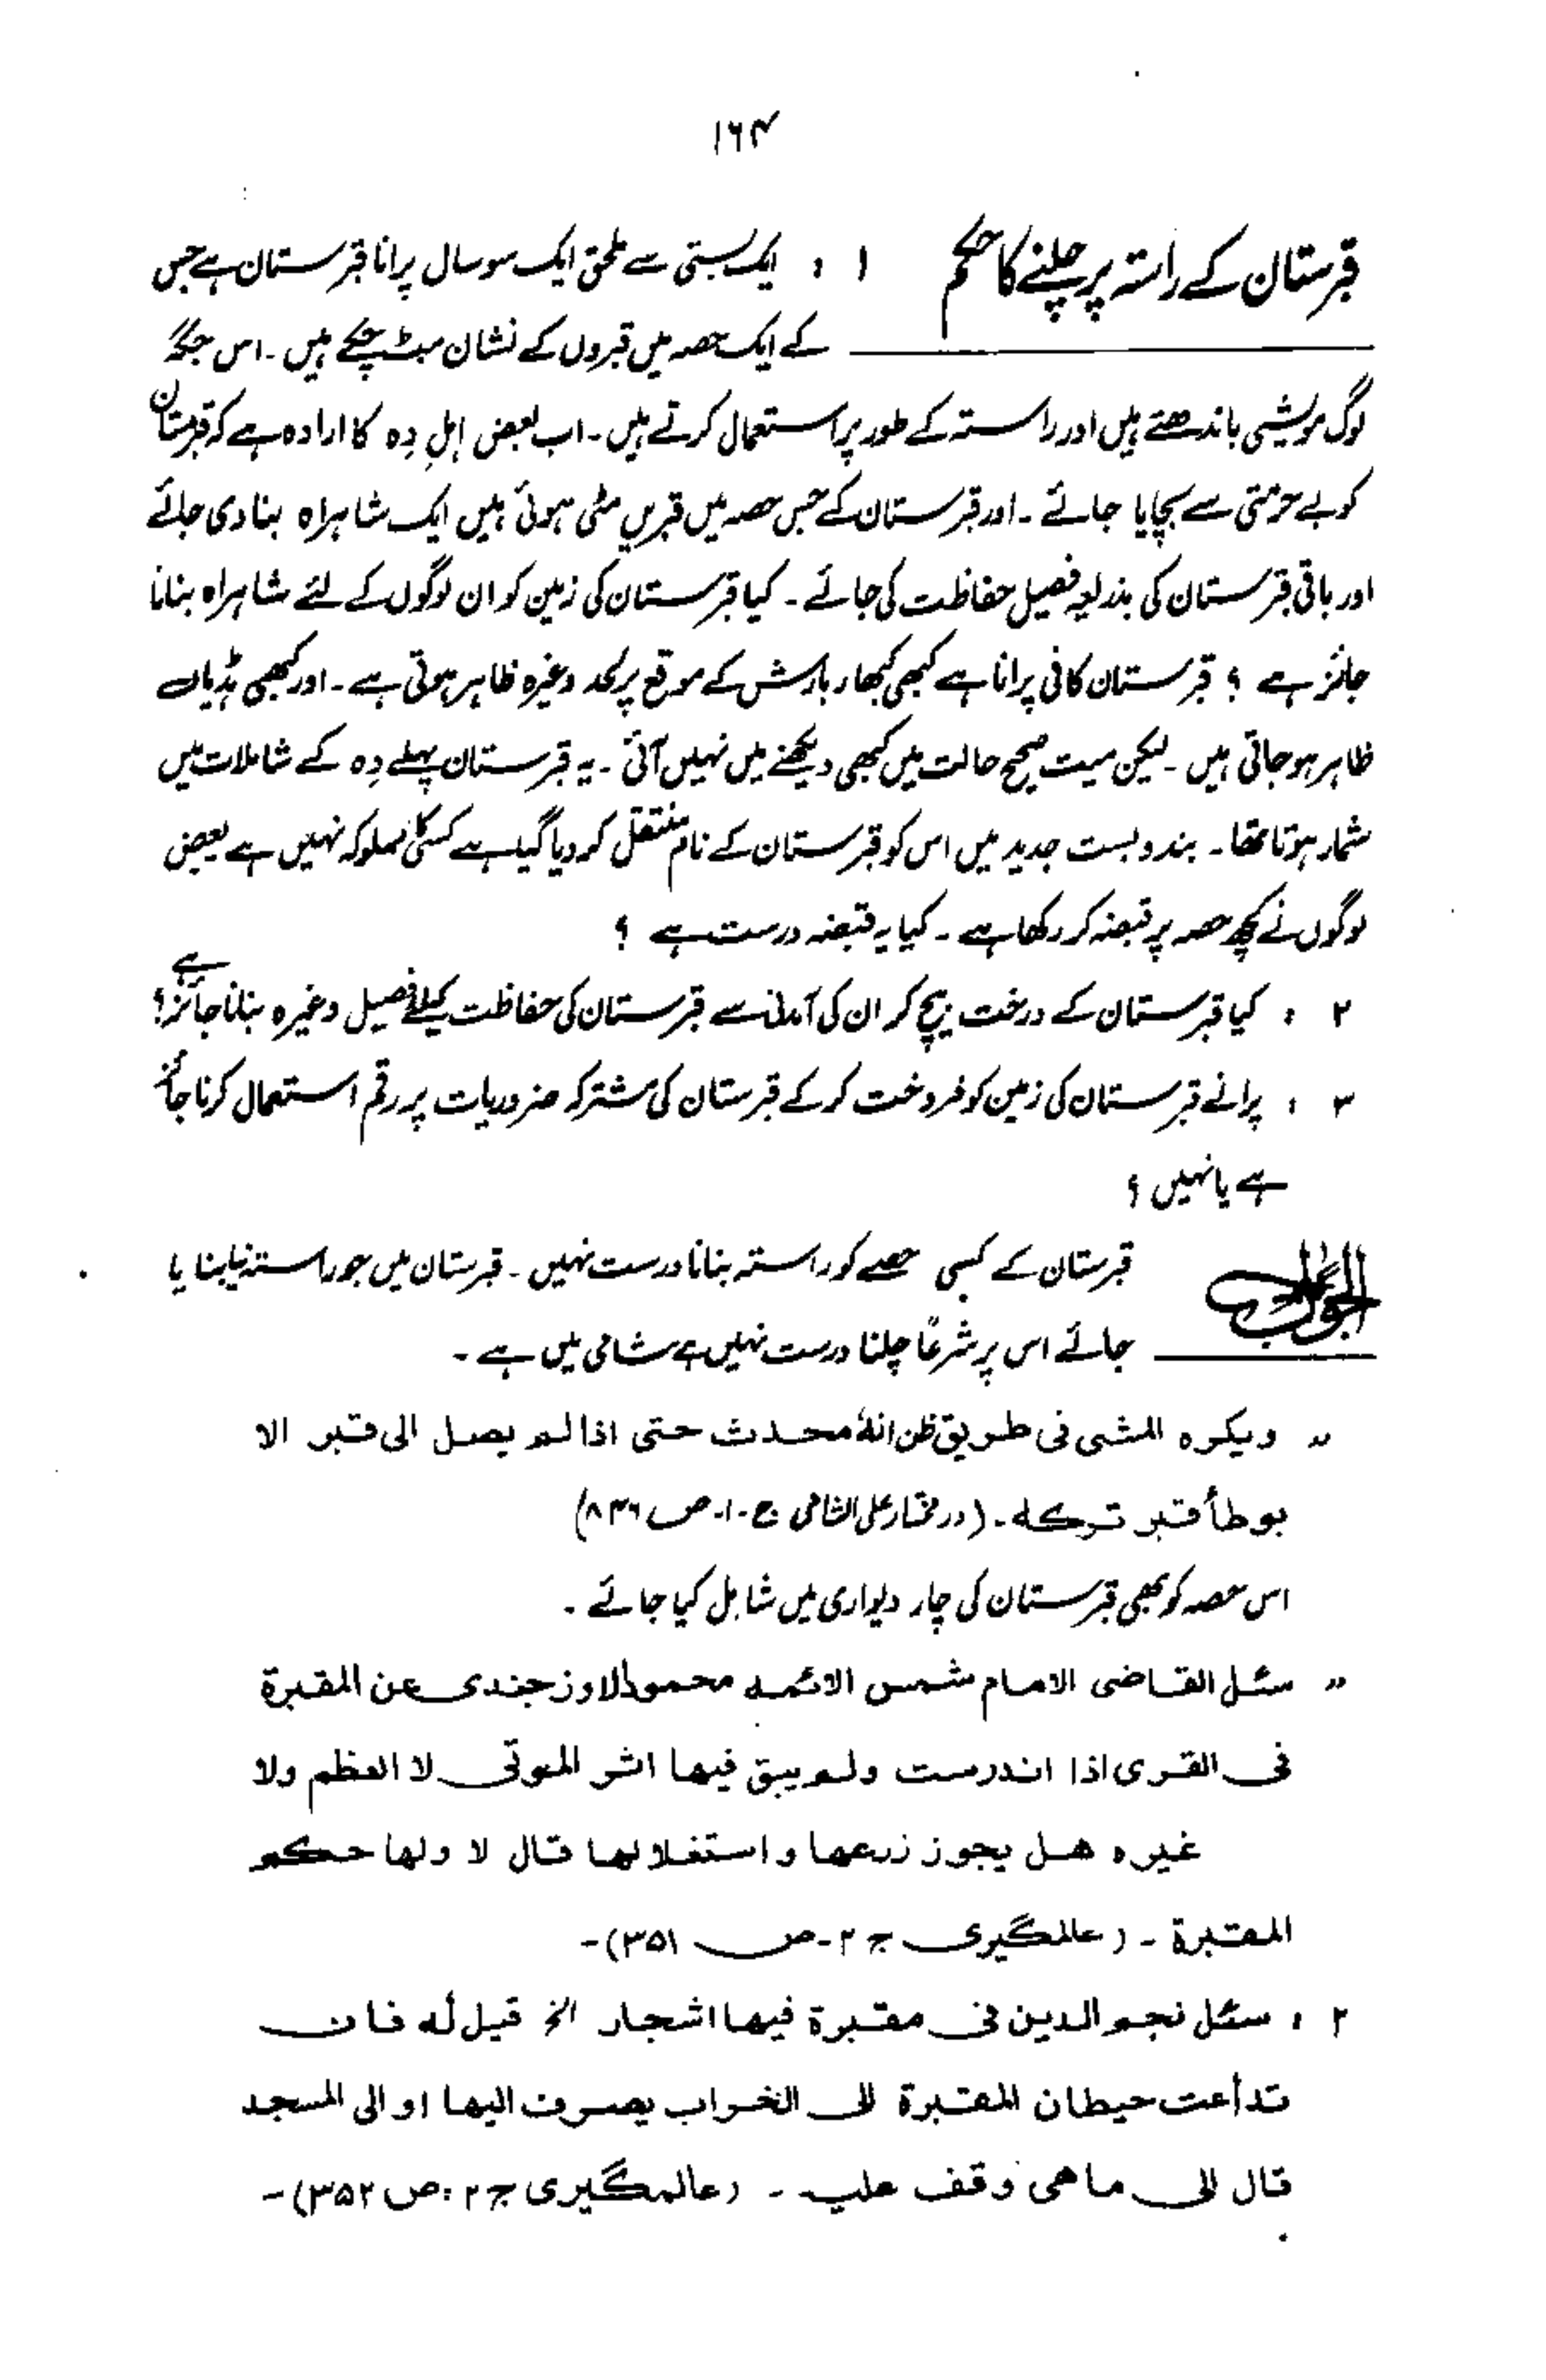 ۱۶۴
قبرستان کے راستہ پر چلنے کا حکم
۱ : ایک بستی سے ملحق ایک سو سال پرانا قبرستان ہے جس
کے ایک حصہ میں قبروں کے نشان مٹ چکے ہیں ۔ اس جگہ
لوگ مویشی باندھتے ہیں اور راستہ کے طور پر استعمال کرتے ہیں ۔ اب بعض اہلِ دِہ کا ارادہ ہے کہ قبرستان
کو بے حرمتی سے بچایا جائے ۔ اور قبرستان کے جس حصہ میں قبریں مٹی ہوئی ہیں ایک شاہراہ بنا دی جائے
اور باقی قبرستان کی بذریعہ فصیل حفاظت کی جائے ۔ کیا قبرستان کی زمین کو ان لوگوں کے لئے شاہراہ بنانا
جائز ہے ؟ قبرستان کافی پرانا ہے کبھی کبھار بارش کے موقع پر لحد وغیرہ ظاہر ہوتی ہے ۔ اور کبھی ہڈیاں
ظاہر ہو جاتی ہیں ۔ لیکن میت صحیح حالت میں کبھی دیکھنے میں نہیں آئی ۔ یہ قبرستان پہلے دِہ کے شاملات میں
شمار ہوتا تھا ۔ بندوبست جدید میں اس کو قبرستان کے نام منتقل کر دیا گیا ہے کسی کا مملوکہ نہیں ہے بعض
لوگوں نے کچھ حصہ پر قبضہ کر رکھا ہے ۔ کیا یہ قبضہ درست ہے ؟
۲ : کیا قبرستان کے درخت بیچ کر ان کی آمدنی سے قبرستان کی حفاظت کیلئے فصیل وغیرہ بنانا جائز ہے ؟
۳ : پرانے قبرستان کی زمین کو فروخت کر کے قبرستان کی مشترکہ ضروریات پر رقم استعمال کرنا جائز
ہے یا نہیں ؟
الجواب
قبرستان کے کسی حصے کو راستہ بنانا درست نہیں ۔ قبرستان میں جو راستہ نیا بنایا
جائے اس پر شرعًا چلنا درست نہیں ہے شامی میں ہے ۔
" ویکرہ المشی فی طریق ظن انہٗ محدث حتی اذا لم یصل الی قبر الا
بوطأ قبر ترکہ ۔ (در مختار علی الشامی ج-۱- ص ۸۳۶)
اس حصہ کو بھی قبرستان کی چار دیواری میں شامل کیا جائے ۔
" سئل القاضی الامام شمس الائمہ محمود الاوزجندی عن المقبرة
فی القری اذا اندرست ولم یبق فیہا اثر الموتی لا العظم ولا
غیرہ ھل یجوز زرعہا و استغلالہا قال لا ولہا حکم
المقبرة ۔ (عالمگیری ج ۲ - ص ۳۵۱)۔
۲ : سئل نجم الدین فی مقبرة فیہا اشجار الخ قیل لہ فان
تداعت حیطان المقبرة الی الخراب یصرف الیہا او الی المسجد
قال الی ما ھی وقف علیہ ۔ (عالمگیری ج ۲ : ص ۳۵۲)۔